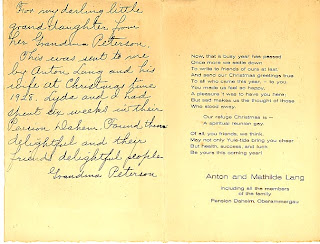 For my darling little
granddaughter from
her Grandma Peterson.
This was sent to me
by Anton Lang and his
wife at Christmas time
1928. Lyda and I had
spent six weeks in their
Pension Daheim. Found them
delightful and their
friends delightful people.
Grandma Peterson
Now, that a busy year has passed
Once more we settle down
To write to friends of ours at last
And send our Christmas greetings true
To all who came this year, - to you.
You made us feel so happy,
A pleasure it was to have you here:
But sad makes us the thought of those
Who stood away.
Our refuge Christmas is —
"A spiritual reunion gay.
Of all, you friends, we think,
May not only Yule-tide bring you cheer
But health, success, and luck
Be yours this coming year!
Anton and Mathilde Lang
Including all the members
of the family
Pension Daheim, Oberammergau